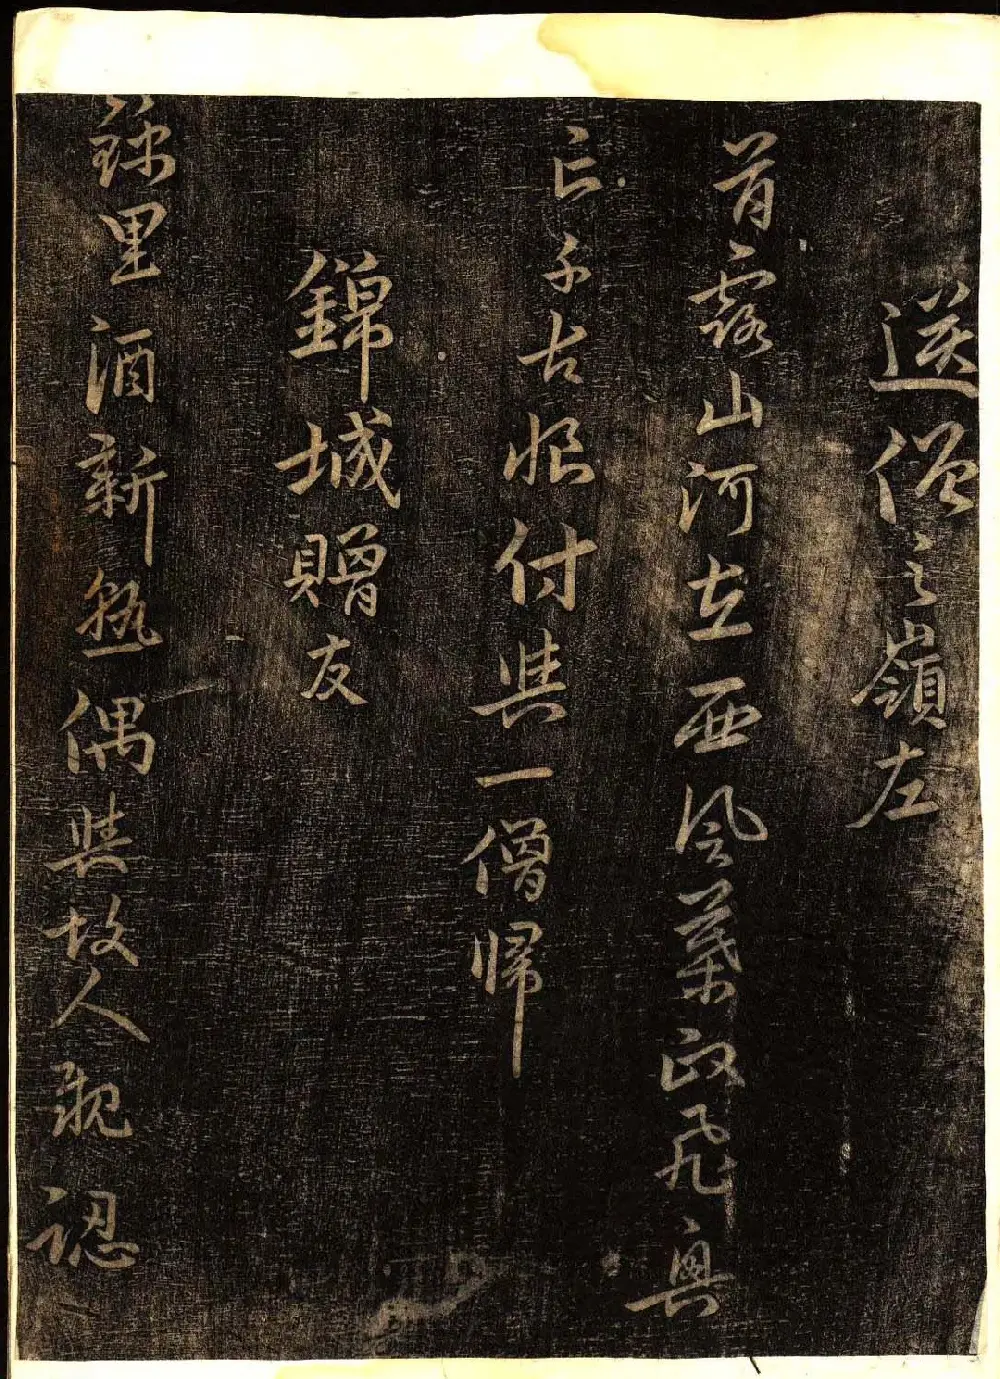 送僧之嶺左
首露山河在西風葉政飛興
亡千古恨付與一僧歸
錦城贈友
錦里酒新熟偶與故人親認